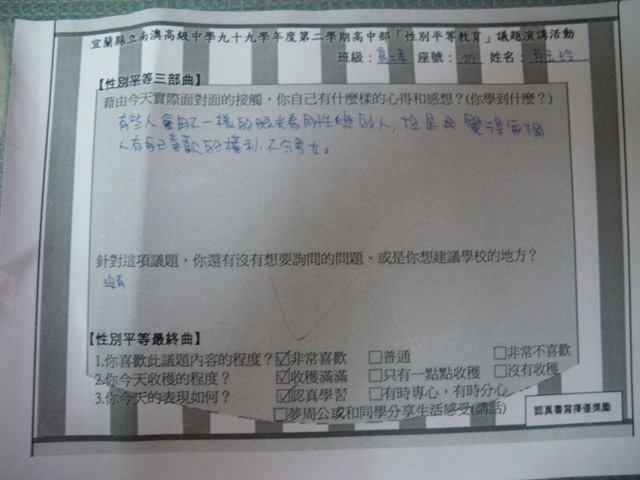 宜蘭縣立南澳高級中學九十九學年度第二學期高中部「性別平等教育」議題演講活動
班級：高二孝 座號： 姓名：
【性別平等三部曲】
藉由今天實際面對面的接觸，你自己有什麼樣的心得和感想？(你學到什麼？)
有些人會用不一樣的眼光看同性戀的人，但是我覺得每個
人有自己喜歡的權利，不分男女。
針對這項議題，你還有沒有想要詢問的問題、或是你想建議學校的地方？
沒有
【性別平等最終曲】
1.你喜歡此議題內容的程度？☑非常喜歡 □普通 □非常不喜歡
2.你今天收穫的程度？ ☑收穫滿滿 □只有一點點收穫 □沒有收穫
3.你今天的表現如何？ ☑認真學習 □有時專心，有時分心
□夢周公或和同學分享生活感受(講話)
認真書寫擇優獎勵